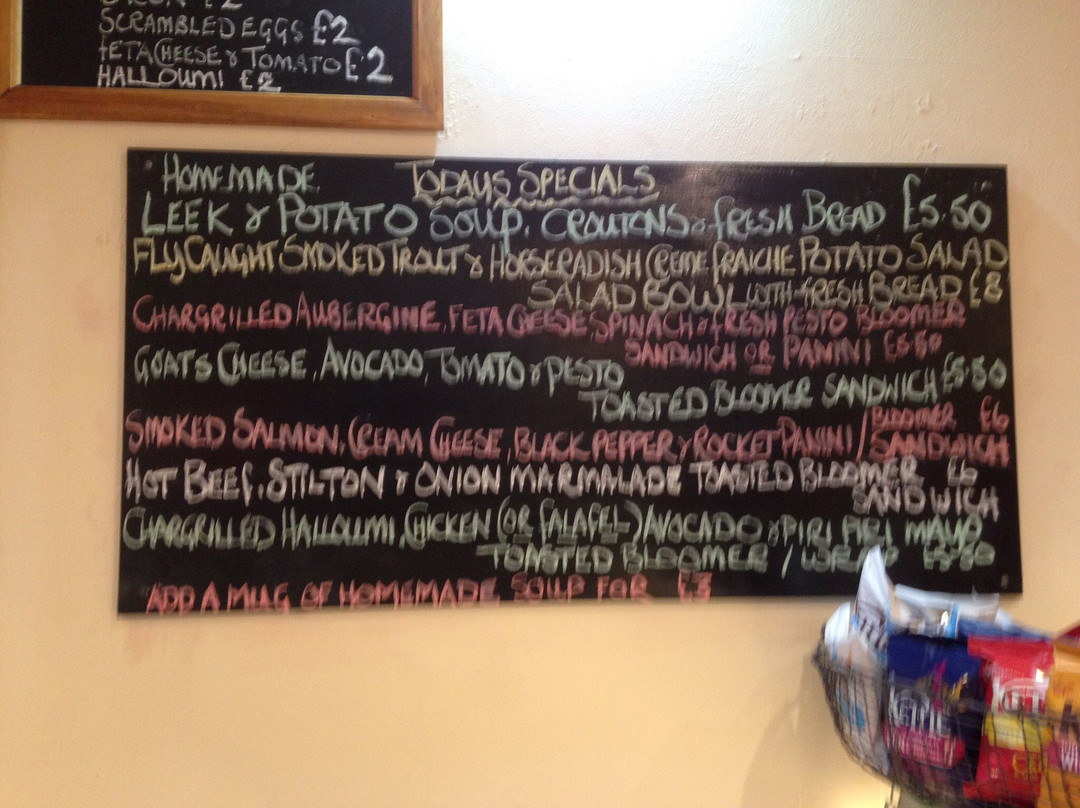 SCRAMBLED EGGS £2
FETA CHEESE & TOMATO £2
HALLOUMI £2
HOMEMADE TODAYS SPECIALS
LEEK & POTATO SOUP, CROUTONS & FRESH BREAD £5.50
FLY CAUGHT SMOKED TROUT & HORSERADISH CREME FRAICHE POTATO SALAD
SALAD BOWL WITH FRESH BREAD £8
CHARGRILLED AUBERGINE, FETA CHEESE, SPINACH & FRESH PESTO BLOOMER
SANDWICH OR PANINI £5.50
GOATS CHEESE, AVOCADO, TOMATO & PESTO
TOASTED BLOOMER SANDWICH £5.50
SMOKED SALMON, CREAM CHEESE, BLACK PEPPER & ROCKET PANINI / BLOOMER £6
SANDWICH
HOT BEEF, STILTON & ONION MARMALADE TOASTED BLOOMER £6
SANDWICH
CHARGRILLED HALLOUMI, CHICKEN (OR FALAFEL) AVOCADO & PIRI PIRI MAYO
TOASTED BLOOMER / WRAP
ADD A MUG OF HOMEMADE SOUP FOR £3
KETTLE